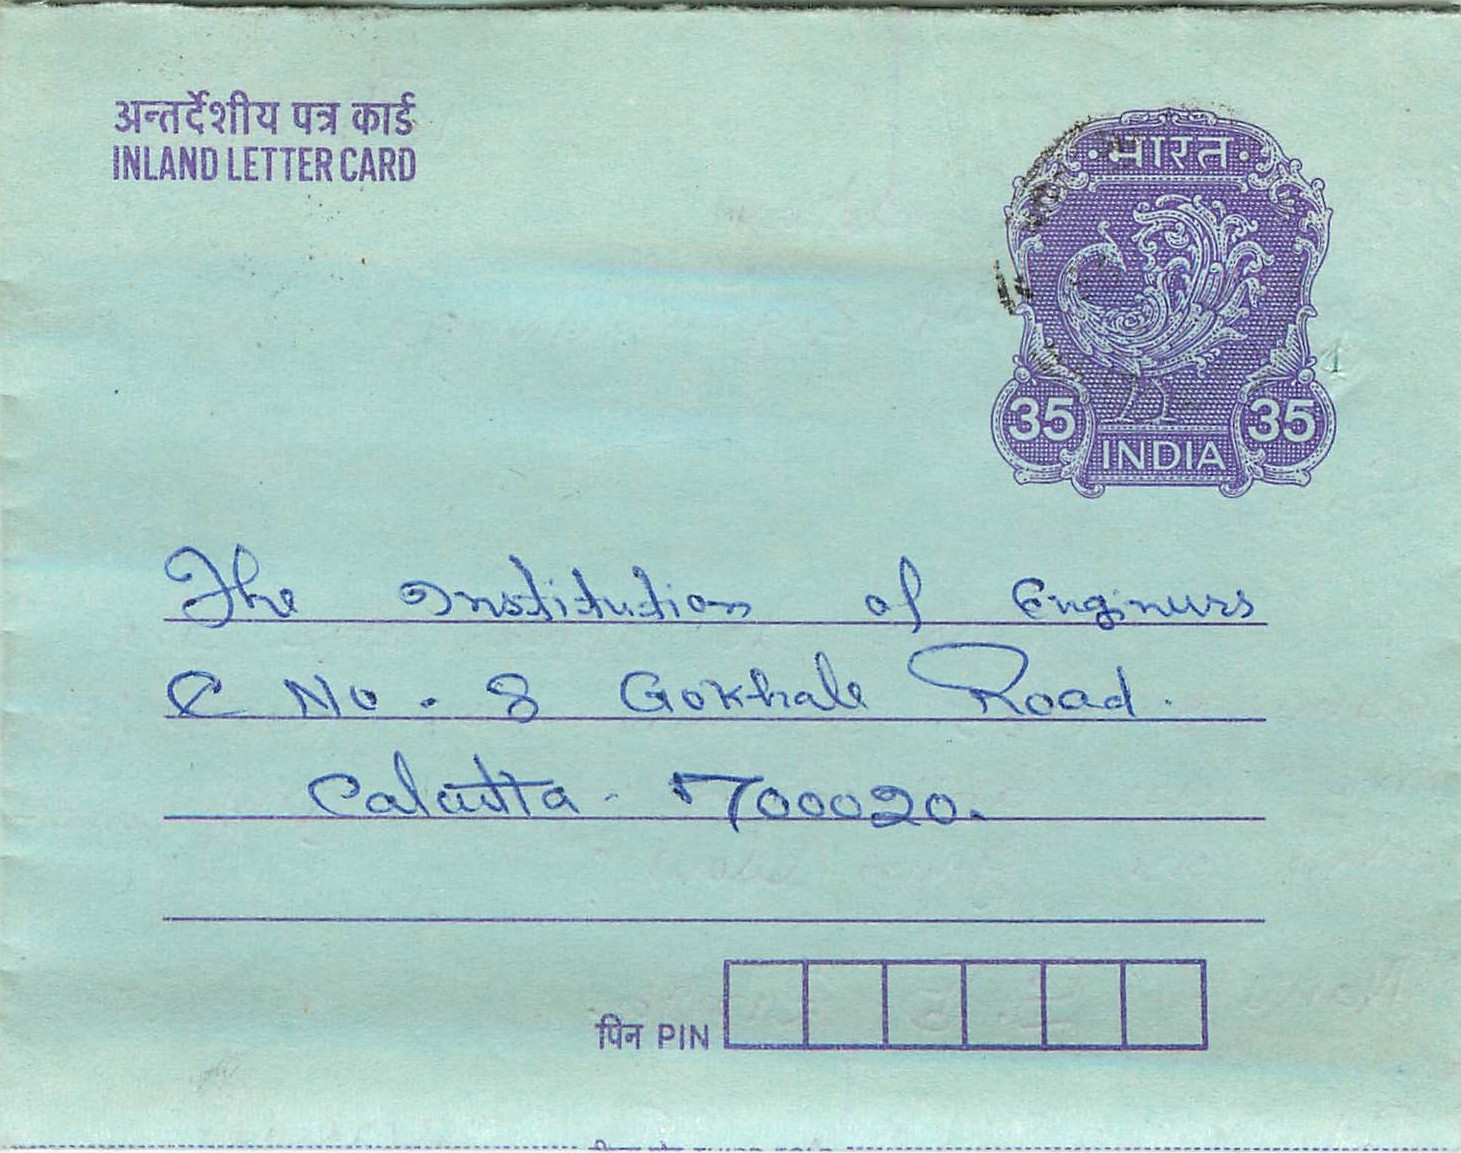 अन्तर्देशीय पत्र कार्ड
INLAND LETTER CARD
भारत
35 35
INDIA
The Institution of Engineers
C No. 8 Gokhale Road.
Calcutta - 700020.
पिन PIN